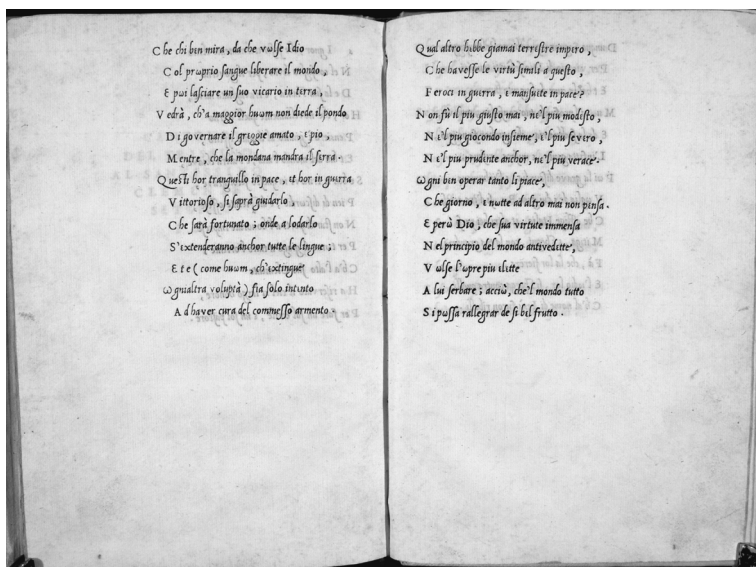 Che chi bεn mira, da che vωlſe Idio
Col prωprio ſangue liberare il mondo,
Ɛ pωi laſciare un ſuo vicario in tεrra,
Vedrà, ch'a maggior huωm non diede il pondo
Di gωvernare il greggie amato, ε pio,
Mentre, che la mondana mandra il ſerra.
Queſti hor tranquillo in pace, εt hor in guεrra
Vittorioſo, ſi ſaprà guidarlo,
Che ſarà fortunato; onde a lodarlo
S'εxtenderanno anchor tutte le lingue;
Ɛ te (come huωm, ch'εxtingue
Ωgnialtra voluptà) fia ſolo intεnto
Ad haver cura del commeſſo armento.
Qual altro hεbbe giamai terrεſtre impεro,
Che haveſſe le virtù ſimili a queſto,
Feroci in guεrra, ε manſuεte in pace?
Non fù il piu giuſto mai, nε'l piu modεſto,
Nε'l piu giocondo inſieme, ε'l piu ſevεro,
Nε'l piu prudεnte anchor, nε'l piu verace.
Ωgni bεn operar tanto li piace,
Che giorno, ε nωtte ad altro mai non pεnſa.
Ɛ perὼ Dio, che ſua virtute immεnſa
Nel principio del mondo antivedette,
Vωlſe l'ωpre piu εlεtte
A lui ſerbare; acciò, che'l mondo tutto
Si pωſſa rallegrar de ſi bεl frutto.